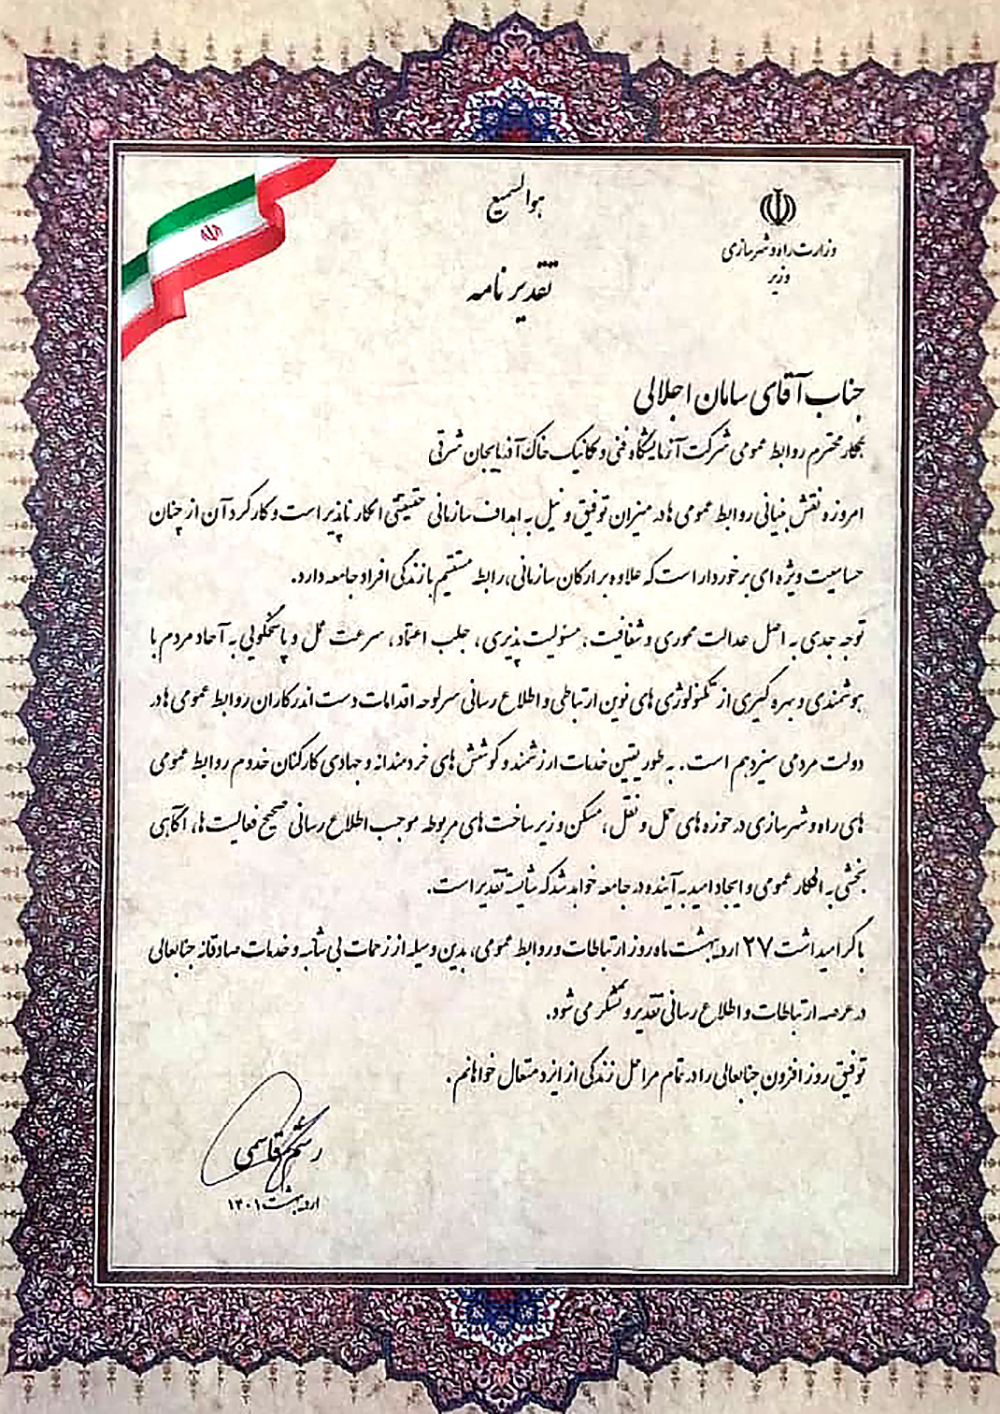 هوالسمیع
وزارت راه و شهرسازی
وزیر
تقدیرنامه
جناب آقای سامان اجلالی
همکار محترم روابط عمومی شرکت آزمایشگاه فنی و مکانیک خاک آذربایجان شرقی
امروزه نقش بنیانی روابط عمومی ها در میزان توفیق و نیل به اهداف سازمانی حقیقتی انکار ناپذیر است و کارکرد آن از چنان
حساسیت ویژه ای برخوردار است که علاوه بر ارکان سازمانی، رابطه مستقیم با زندگی افراد جامعه دارد.
توجه جدی به اصل عدالت محوری و شفافیت، مسئولیت پذیری، جلب اعتماد، سرعت عمل و پاسخگویی به آحاد مردم با
هوشمندی و بهره گیری از تکنولوژی های نوین ارتباطی و اطلاع رسانی سرلوحه اقدامات دست اندرکاران روابط عمومی ها در
دولت مردمی سیزدهم است. به طور یقین خدمات ارزشمند و کوشش های خردمندانه و جهادی کارکنان خدوم روابط عمومی
های راه و شهرسازی در حوزه های حمل و نقل، مسکن و زیرساخت های مربوطه موجب اطلاع رسانی صحیح فعالیت ها، آگاهی
بخشی به افکار عمومی و ایجاد امید به آینده در جامعه خواهد شد که شایسته تقدیر است.
با گرامیداشت ۲۷ اردیبهشت ماه روز ارتباطات و روابط عمومی، بدین وسیله از زحمات بی شائبه و خدمات صادقانه جنابعالی
در عرصه ارتباطات و اطلاع رسانی تقدیر و تشکر می شود.
توفیق روز افزون جنابعالی را در تمام مراحل زندگی از ایزد متعال خواهانم.
رستم قاسمی
اردیبهشت ۱۴۰۱